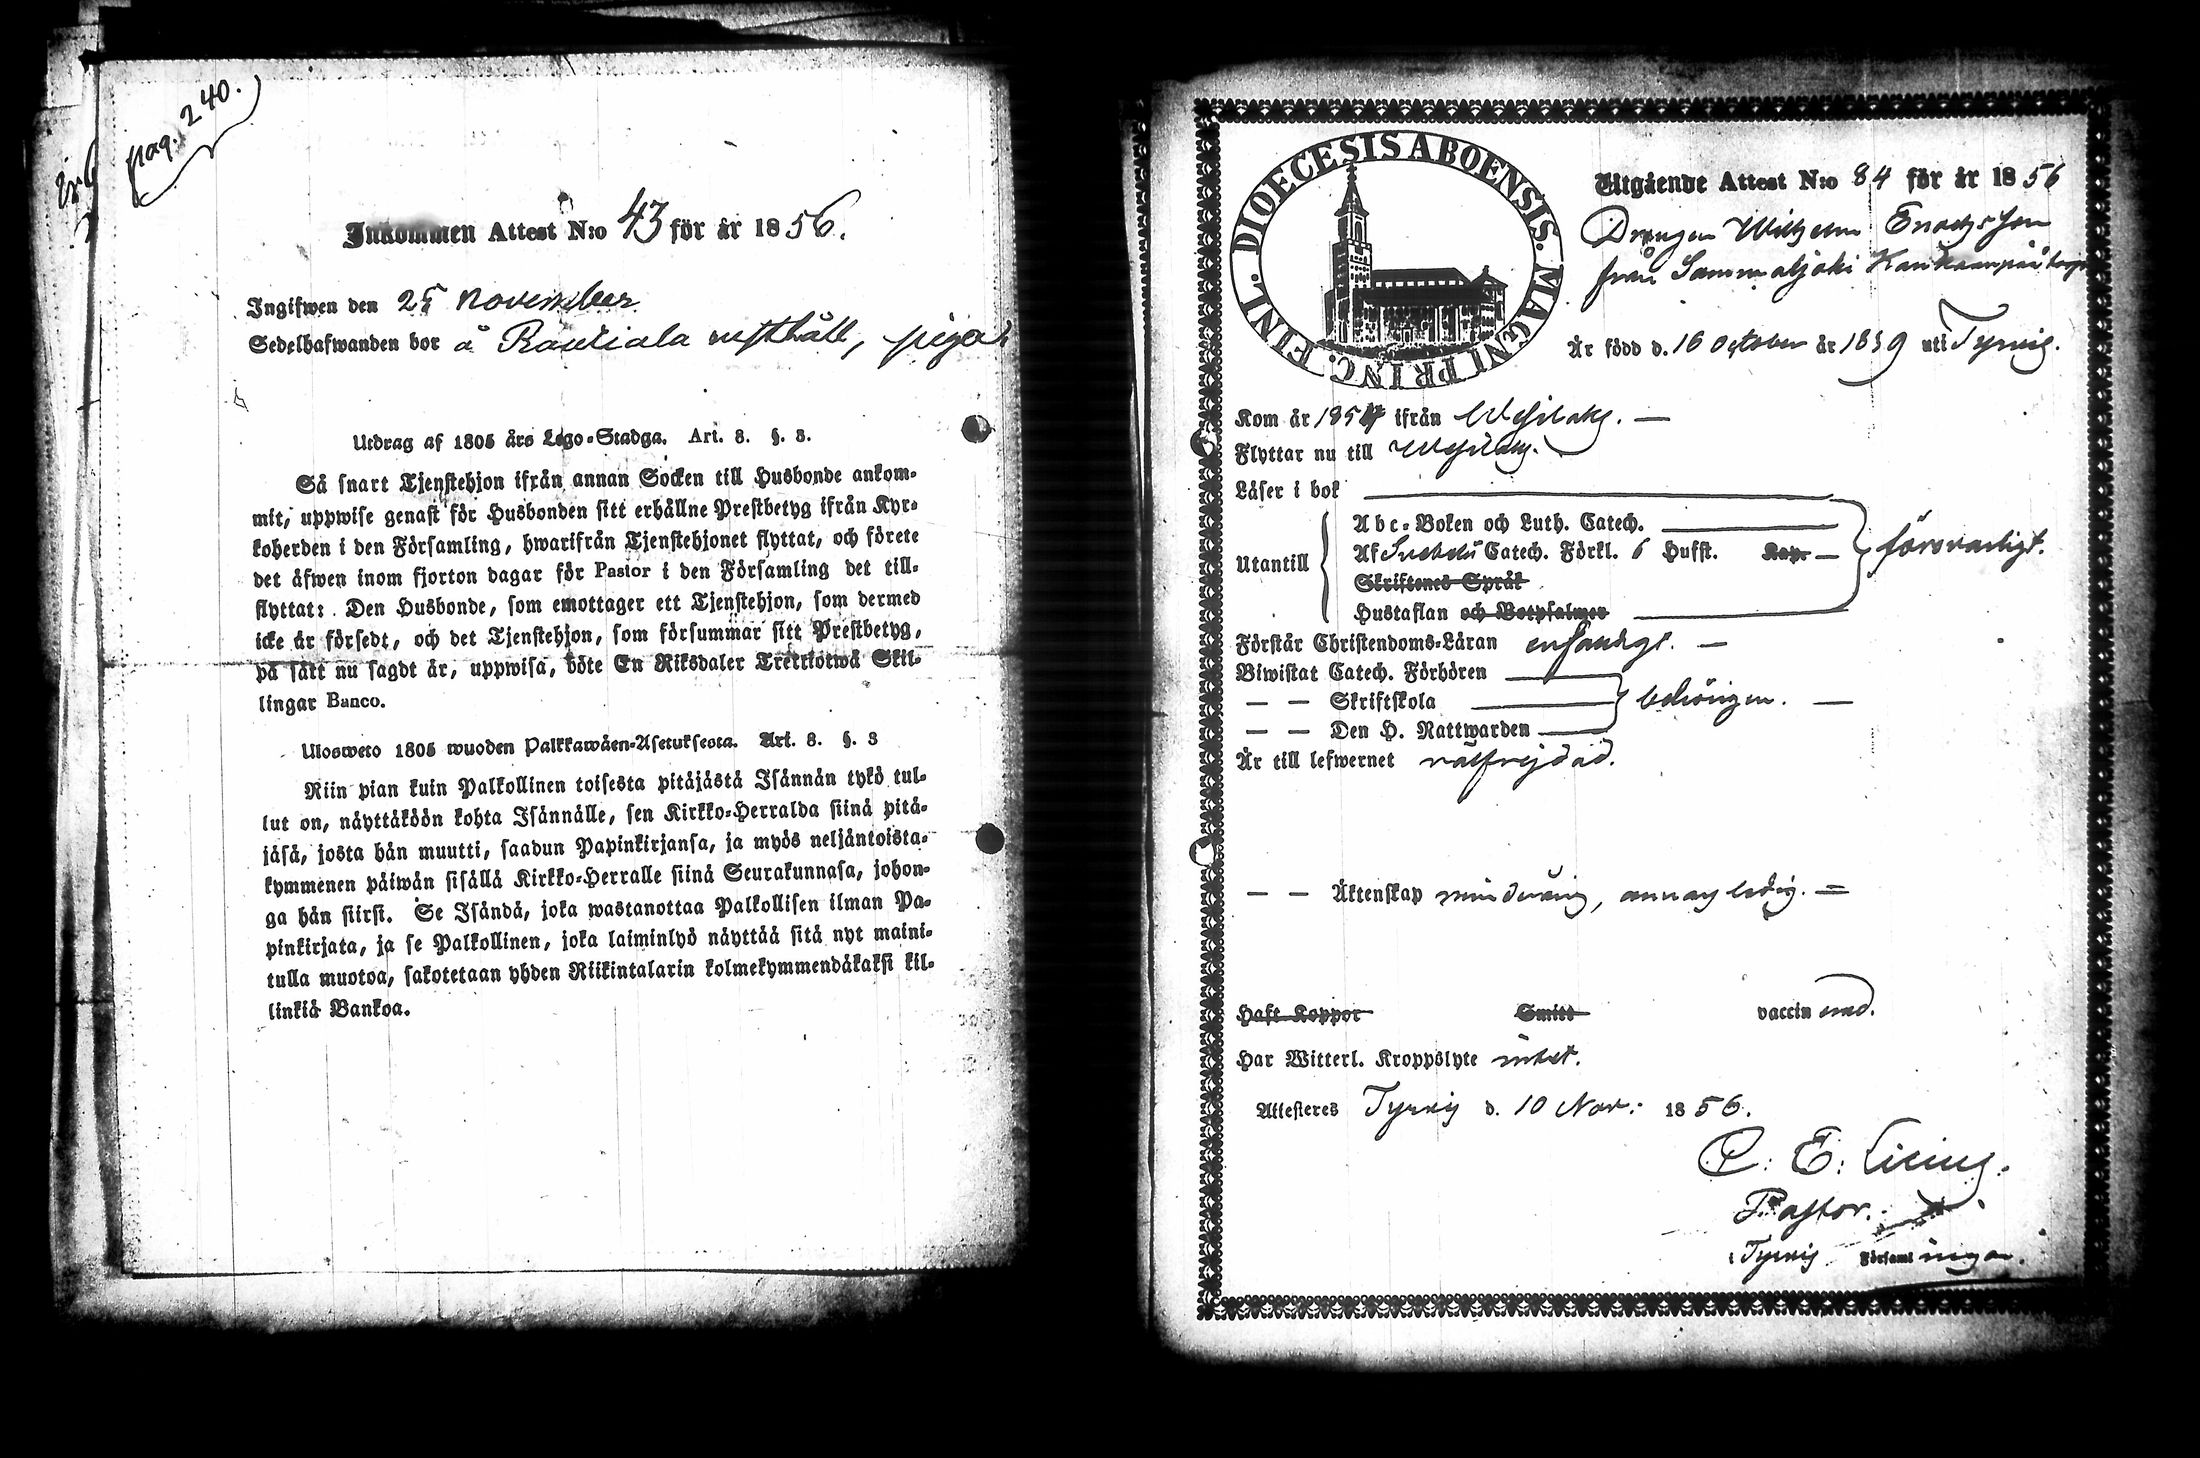 pag. 240.
Inkommen Attest N:o 43 för år 1856.
Ingifwen den 25 November
Sedelhafwanden bor å Rautiala rusthåll, piga
Utdrag af 1805 års Lego-Stadga. Art. 8. §. 3.
Så snart Tjenstehjon ifrån annan Socken till Husbonde ankom-
mit, uppwise genast för Husbonden sitt erhållne Prestbetyg ifrån Kyr-
koherden i den Församling, hwarifrån Tjenstehjonet flyttat, och förete
det äfwen inom fjorton dagar för Pastor i den Församling det till-
flyttat: Den Husbonde, som emottager ett Tjenstehjon, som dermed
icke är försedt, och det Tjenstehjon, som försummar sitt Prestbetyg,
på sätt nu sagdt är, uppwisa, böte En Riksdaler Trettiotwå Skil-
lingar Banco.
Ulosweto 1805 wuoden Palkkawäen-Asetuksesta. Art. 8. §. 3
Niin pian kuin Palkollinen toisesta pitäjästä Isännän tykö tul-
lut on, näyttäköön kohta Isännälle, sen Kirkko-Herralda siinä pitä-
jäsä, josta hän muutti, saadun Papinkirjansa, ja myös neljäntoista-
kymmenen päiwän sisällä Kirkko-Herralle siinä Seurakunnasa, johon-
ga hän siirsi. Se Isändä, joka wastanottaa Palkollisen ilman Pa-
pinkirjata, ja se Palkollinen, joka laiminlyö näyttää sitä nyt maini-
tulla muotoa, sakotetaan yhden Riikintalarin kolmekymmendäkaksi kil-
linkiä Bankoa.
DIOECESIS ABOENSIS. MAGNI PRINC. FINL.
Utgående Attest N:o 84 för år 1856
Drengen Wilhelm Enochsson
från Sammaljoki Kankaanpää
Är född d. 16 October år 1839 uti Tyrvis.
Kom år 1854 ifrån Wesilaks. —
Flyttar nu till Wesilaks.
Läser i bok
Abc-Boken och Luth. Catech.
Utantill Af Svebelii Catech. Förkl. 6 Hufst. Kap. — försvarligt.
Skriftenes Språk
Hustaflan och Botpsalmer
Förstår Christendoms-Läran enfaldigt. —
Biwistat Catech. Förhören
— — Skriftskola behörigen. —
— — Den H. Nattwarden
Är till lefwernet välfrejdad.
— — Äktenskap minderårig, annars ledig. —
Haft Koppor Smitt vaccinerad.
Har Witterl. Kroppslyte intet.
Attesteres Tyrvis d. 10 Nov: 1856.
C. E. Liling.
Pastor.
i Tyrvis Församlingar.